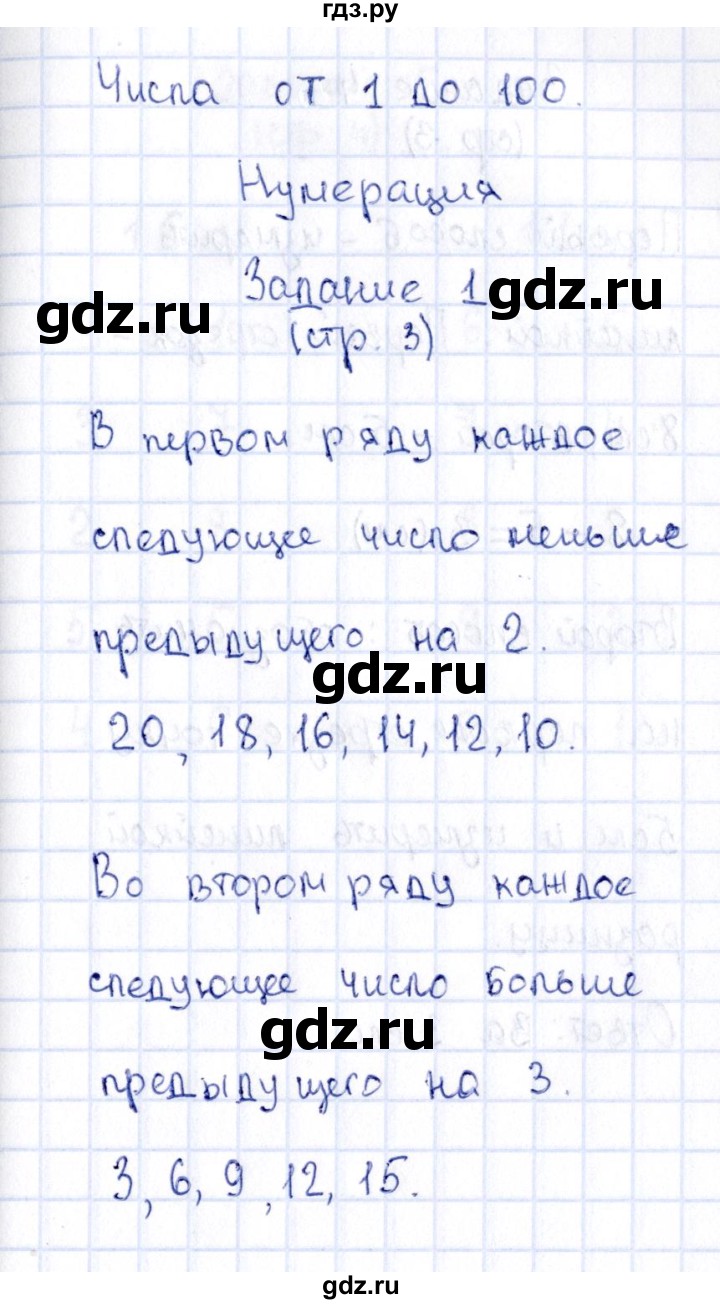 гдз.ру
Числа от 1 до 100.
Нумерация
Задание 1
gdz.ru gdz.ru
(стр. 3)
В первом ряду каждое
следующее число меньше
предыдущего на 2.
gdz.ru
20, 18, 16, 14, 12, 10.
Во втором ряду каждое
следующее число больше
gdz.ru
предыдущего на 3.
3, 6, 9, 12, 15.
gdz.ru